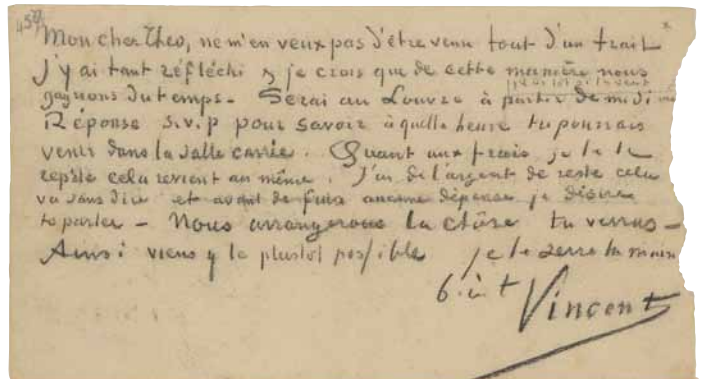 457
Mon cher Theo, ne m'en veux pas d'être venu tout d'un trait
J'y ai tant réfléchi & je crois que de cette manière nous
gagnons du temps – Serai au Louvre à partir de midi
Réponse s.v.p pour savoir à quelle heure tu pourrais
venir dans la Salle carrée. Quant aux frais je te le
repète cela revient au même. J'ai de l'argent de reste cela
va sans dire et avant de faire aucune dépense je désire
te parler – Nous arrangerons la chôse tu verras –
Ainsi viens y le plustot possible je te serre la main
b. à t
Vincent